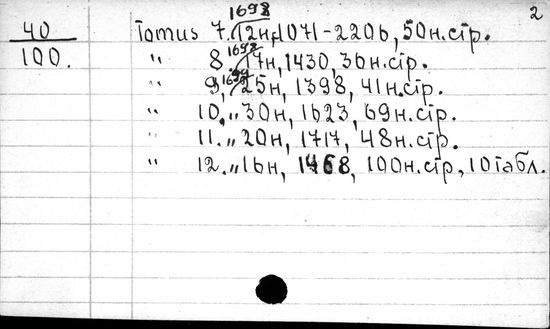 2
40
100.
Tomus 7. 1698 12н, 1071-2206, 50н.стр.
" 8 1698 17н, 1430, 36н.стр.
" 9, 1699 25н, 1398, 41н.стр.
" 10. „ 30н, 1623, 69н.стр.
" 11. „ 20н, 1717, 48н.стр.
" 12. „ 16н, 1468, 100н.стр, 10табл.